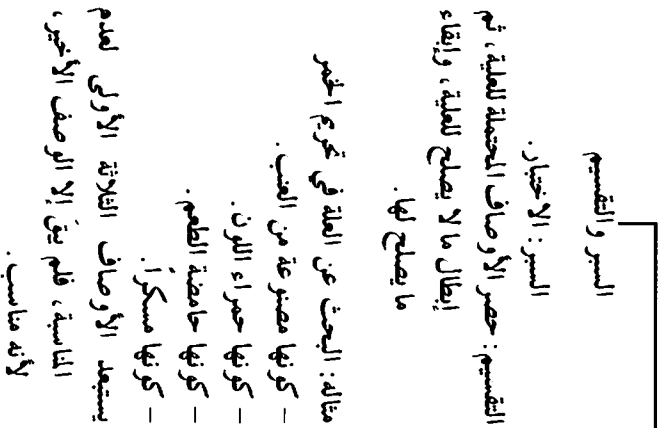 السبر والتقسيم
السبر : الاختبار .
التقسيم : حصر الأوصاف المحتملة للعلية ، ثم
إبطال ما لا يصلح للعلية ، وإبقاء
ما يصلح لها .
مثاله : البحث عن العلة في تحريم الخمر
– كونها مصنوعة من العنب .
– كونها حمراء اللون .
– كونها حامضة الطعم .
– كونها مسكراً .
يستبعد الأوصاف الثلاثة الأولى لعدم
المناسبة ، فلم يبقَ إلا الوصف الأخير ،
لأنه مناسب .